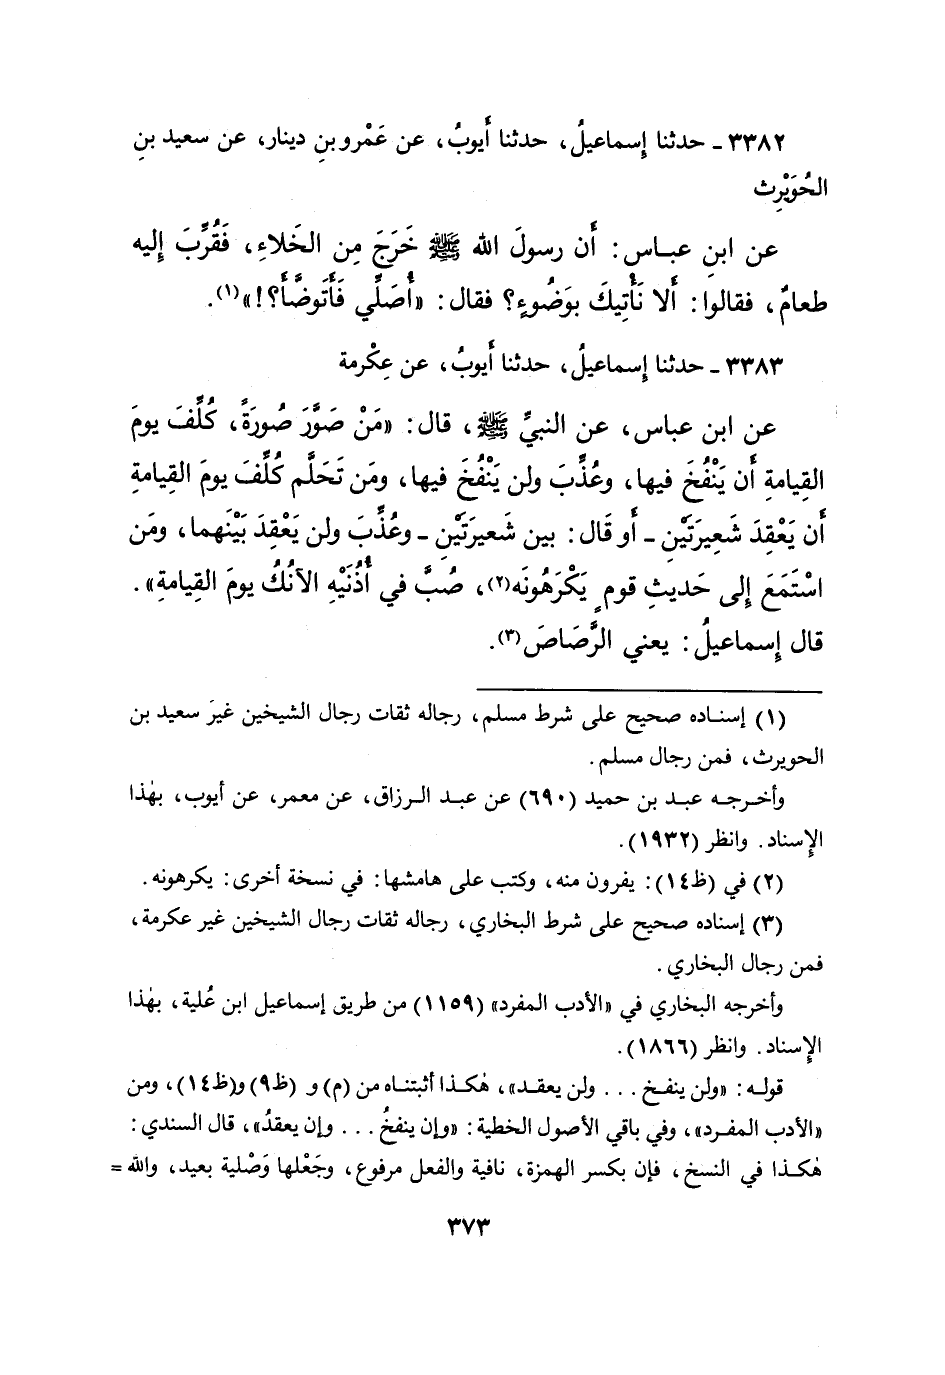 ٣٣٨٢ ـ حدثنا إسماعيلُ، حدثنا أيوبُ، عن عَمْرو بنِ دينار، عن سعيد بنِ
الحُوَيْرِث
عن ابنِ عبـاس: أَن رسولَ الله ﷺ خَرَجَ مِن الخَلاءِ، فَقُرِّبَ إليه
طعامٌ، فقالوا: أَلا نَأْتِيكَ بوَضُوءٍ؟ فقال: «أُصَلِّي فَأَتَوضَّأَ؟!»(١).
٣٣٨٣ ـ حدثنا إسماعيلُ، حدثنا أيوبُ، عن عِكْرمة
عن ابن عباس، عن النبيِّ ﷺ، قال: «مَنْ صَوَّرَ صُورَةً، كُلِّفَ يومَ
القِيامةِ أَن يَنْفُخَ فيها، وعُذِّبَ ولن يَنْفُخَ فيها، ومَن تَحَلَّم كُلِّفَ يومَ القِيامةِ
أَن يَعْقِدَ شَعِيرَتَيْنِ ـ أَو قَال: بين شَعيرَتَيْنِ ـ وعُذِّبَ ولن يَعْقِدَ بَيْنَهما، ومَن
اسْتَمَعَ إلى حَديثِ قومٍ يَكْرَهُونَه(٢)، صُبَّ في أُذُنَيْهِ الآنُكُ يومَ القِيامةِ».
قال إسماعيلُ: يعني الرَّصَاصَ(٣).
(١) إسنـاده صحيح على شرط مسلم، رجاله ثقات رجال الشيخين غيرَ سعيد بن
الحويرث، فمن رجال مسلم.
وأخـرجـه عبـد بن حميد (٦٩٠) عن عبد الـرزاق، عن معمر، عن أيوب، بهٰذا
الإسناد. وانظر (١٩٣٢).
(٢) في (ظ١٤): يفرون منه، وكتب على هامشها: في نسخة أخرى: يكرهونه.
(٣) إسناده صحيح على شرط البخاري، رجاله ثقات رجال الشيخين غير عكرمة،
فمن رجال البخاري.
وأخرجه البخاري في «الأدب المفرد» (١١٥٩) من طريق إسماعيل ابن عُلية، بهٰذا
الإسناد. وانظر (١٨٦٦).
قولـه: «ولن ينفـخ . . . ولن يعقـد»، هٰكـذا أثبتنـاه من (م) و (ظ٩) و(ظ١٤)، ومن
«الأدب المفـرد»، وفي باقي الأصول الخطية: «وإن ينفخُ . . . وإن يعقدُ»، قال السندي:
هٰكـذا في النسخ، فإن بكسر الهمزة، نافية والفعل مرفوع، وجَعْلها وَصْلية بعيد، والله =
٣٧٣